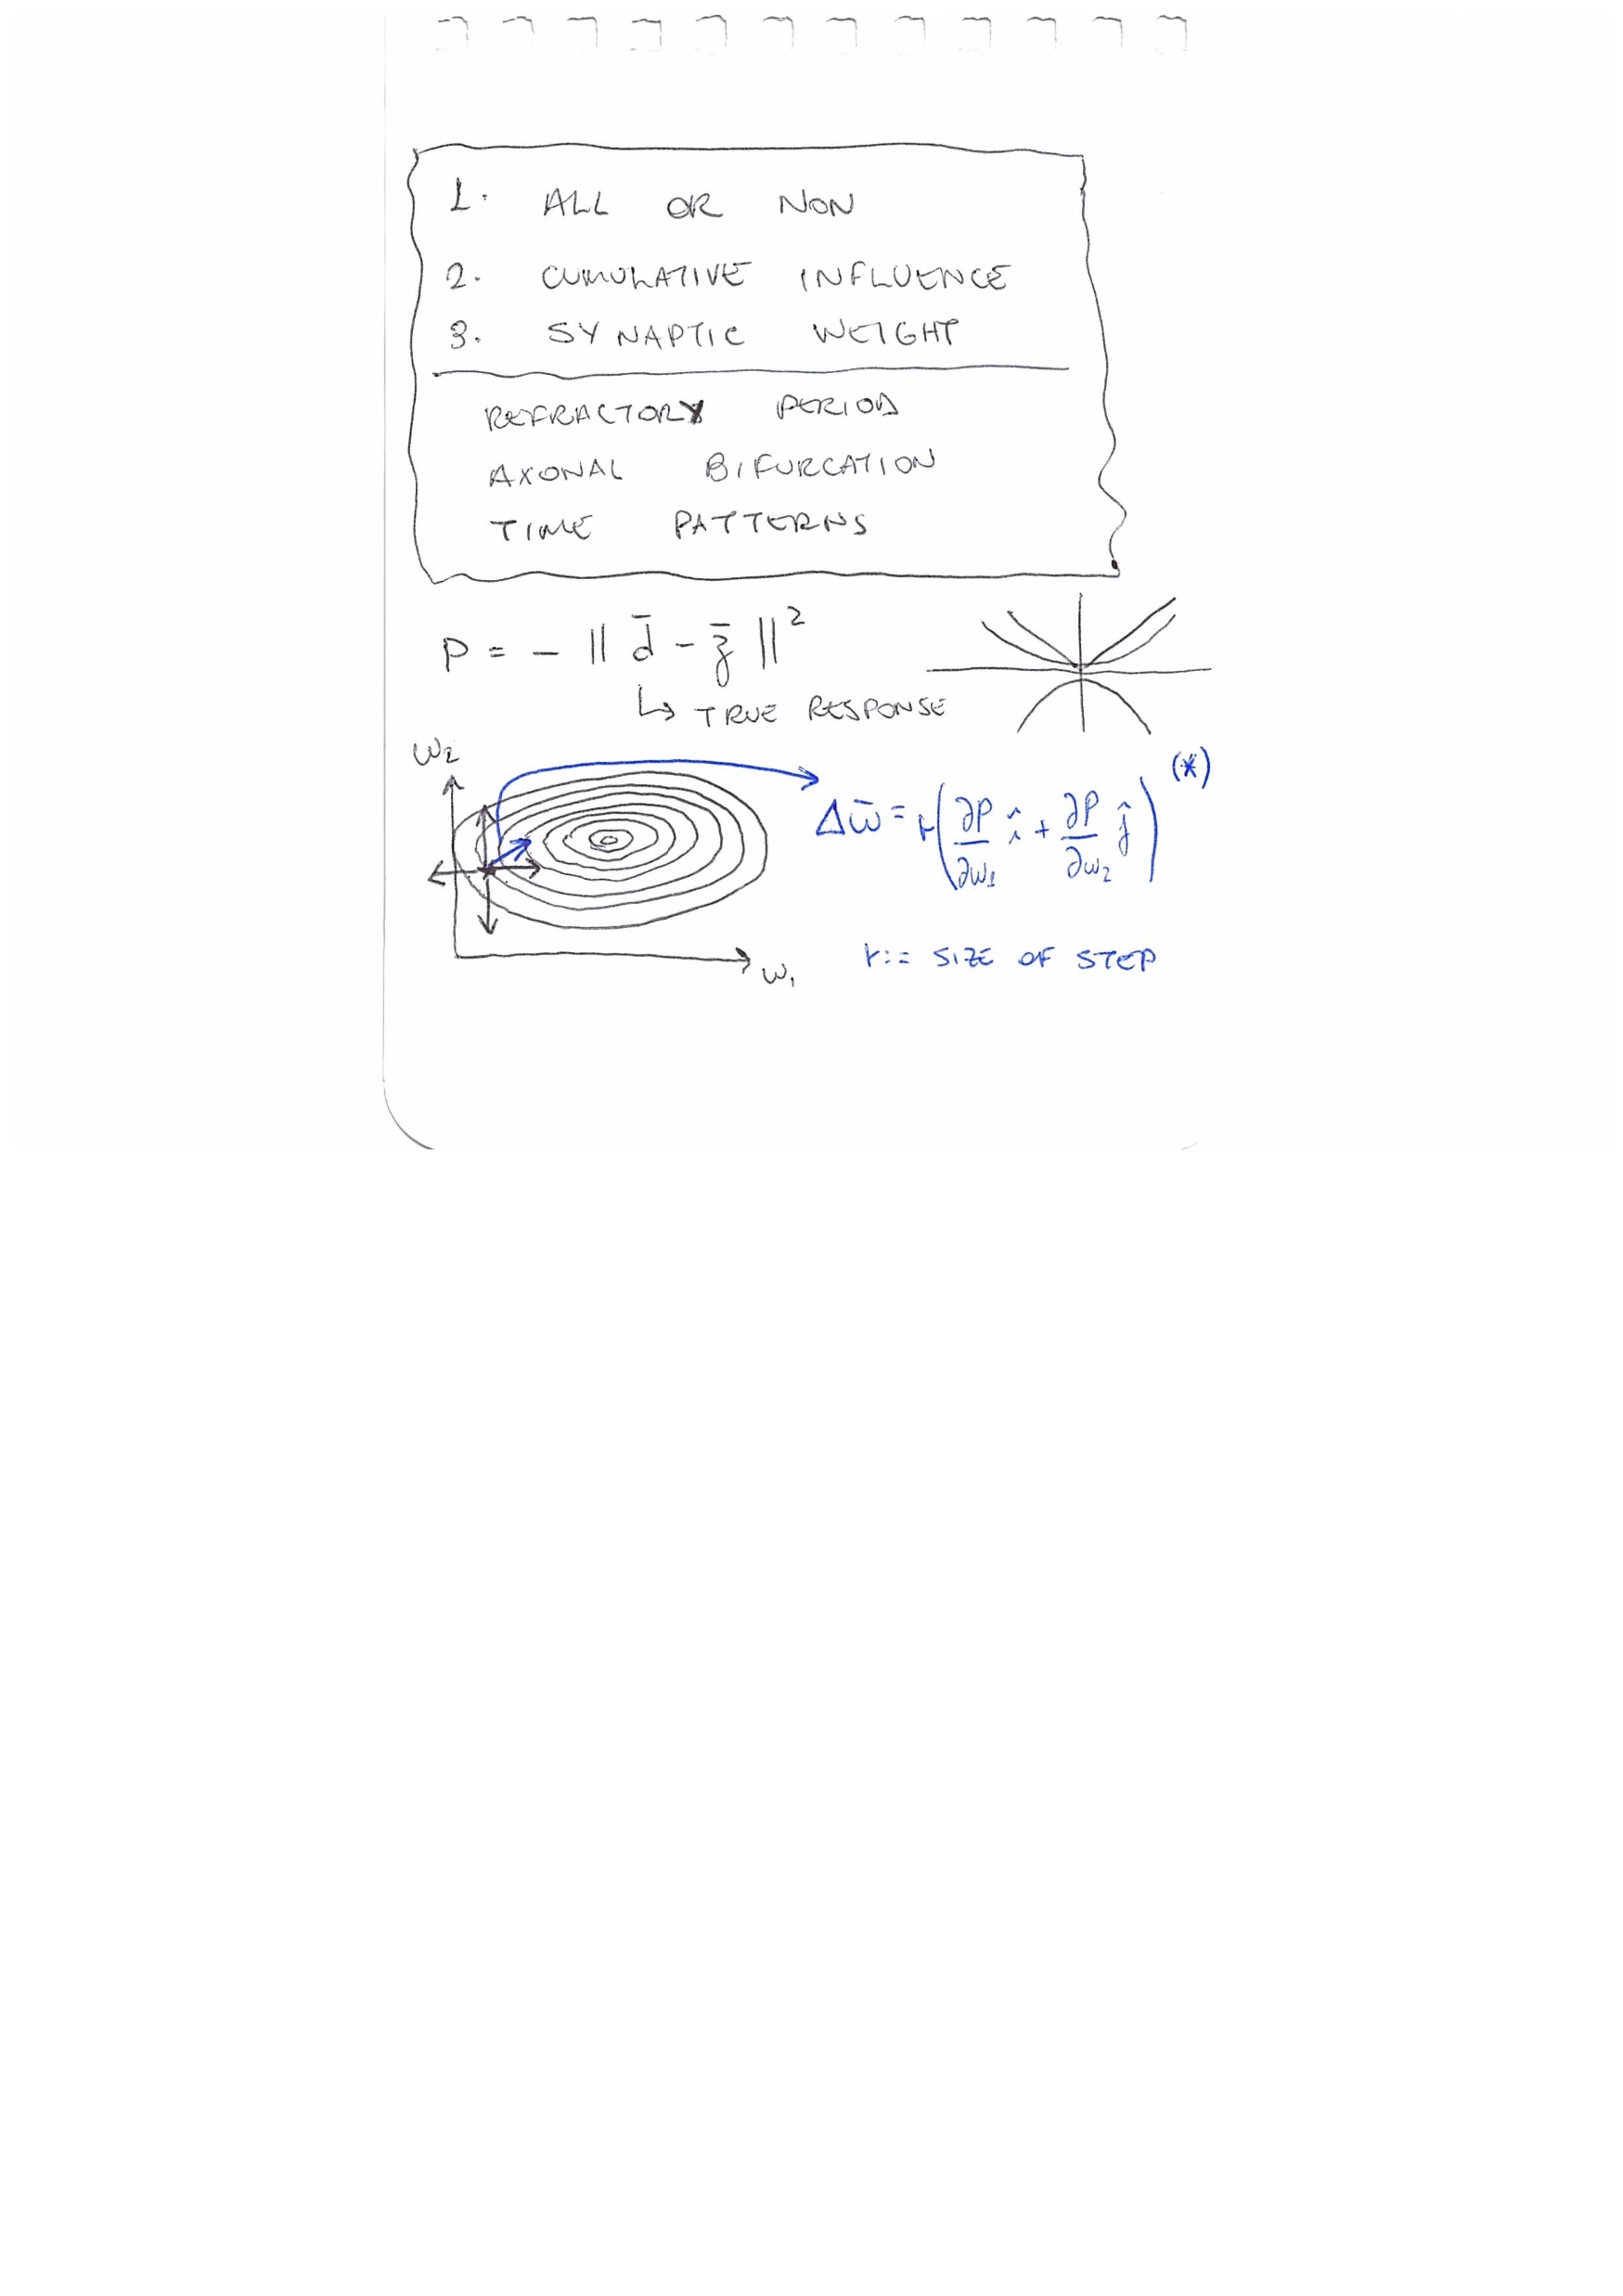 1. ALL OR NON
2. CUMULATIVE INFLUENCE
3. SYNAPTIC WEIGHT
REFRACTORY PERIOD
AXONAL BIFURCATION
TIME PATTERNS
P = - || d̄ - z̄ ||²
↳ TRUE RESPONSE
w₂
Δw̄ = r(∂P/∂w₁ î + ∂P/∂w₂ ĵ) (*)
r := SIZE OF STEP
w₁